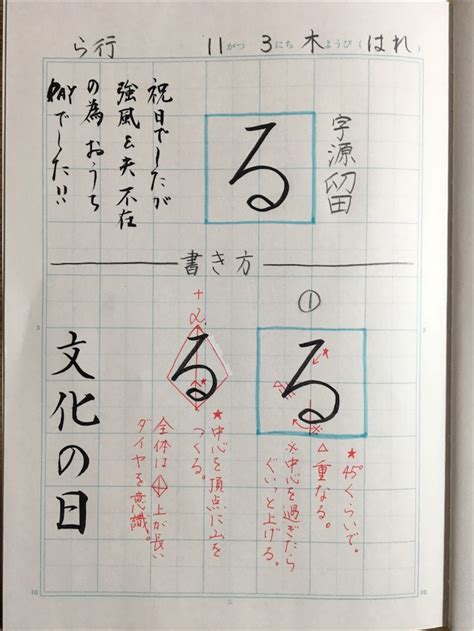 ら行　11がつ 3にち 木ようび（はれ）
字源 留
る
祝日でしたが
強風&夫不在
の為 おうち
DAYでした!!
書き方
①
る
★45°くらいで。
△重なる。
※中心を過ぎたら
ぐいっと上げる。
+α
る
★中心を頂点に山を
つくる。
全体は◇上が長い
ダイヤを意識。
文化の日
10
10